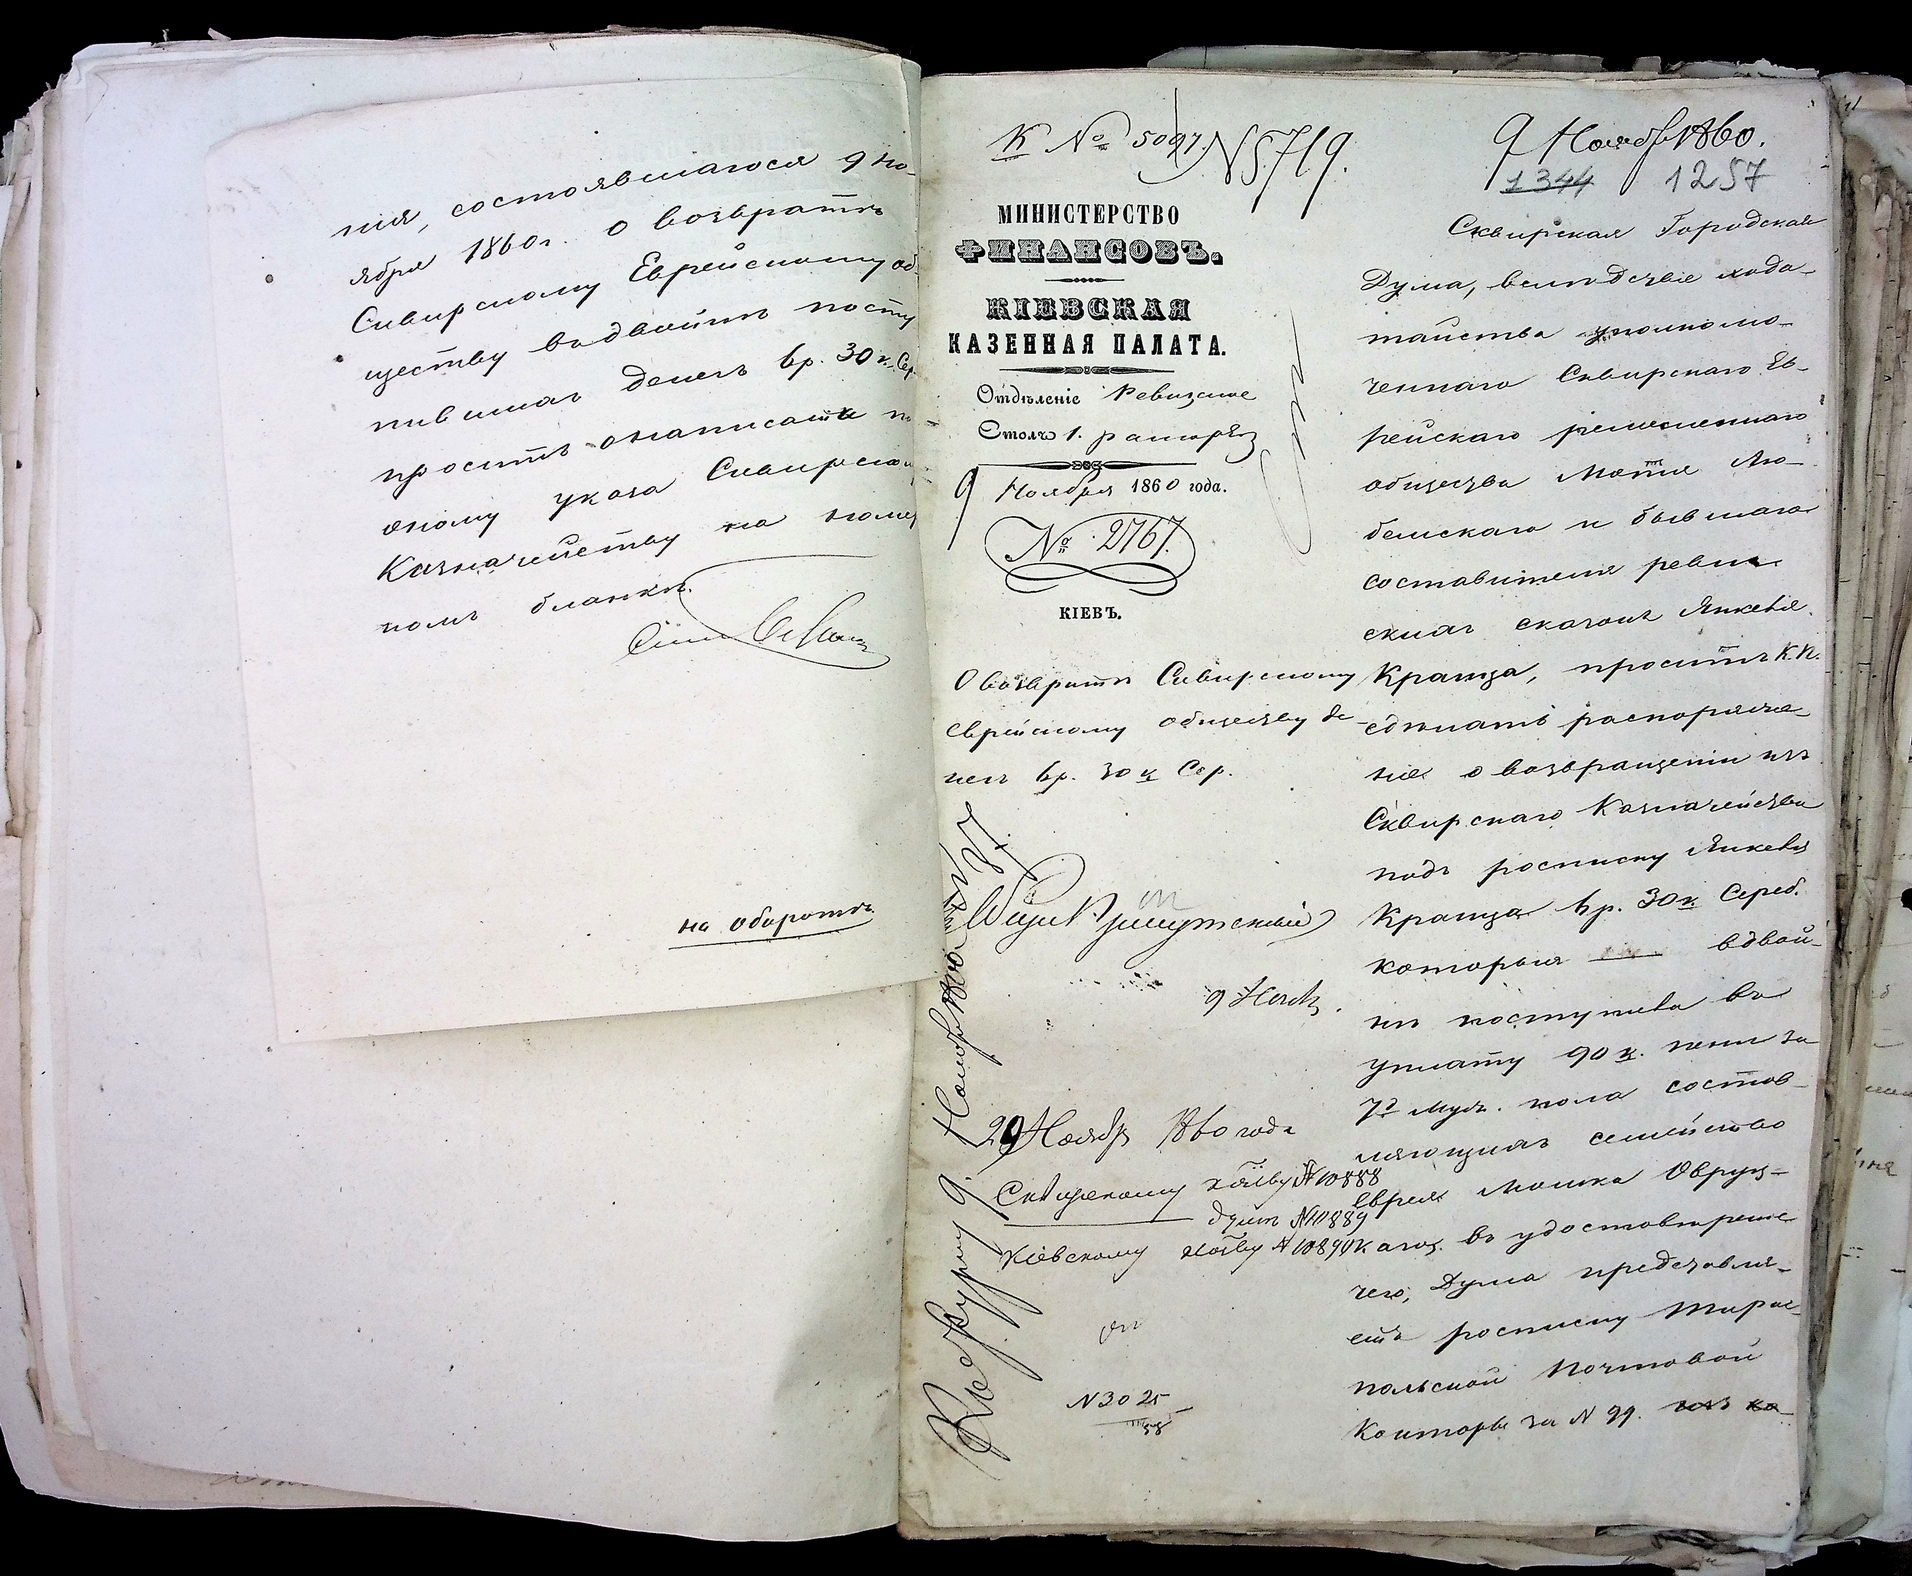 нія, состоявшагося 9 но-
ября 1860 г. о возвратѣ
Сквирскому Еврейскому об-
ществу вдвойнѣ посту
пившихъ денегъ 6 р. 30 к. Сер.
проситъ
оному указа Сквирско
Казначейству на
номъ бланкѣ.
на оборотѣ.
К № 5097 N 5719.
9 Ноября 1860.
1344 1257
МИНИСТЕРСТВО
ФИНАНСОВЪ.
КІЕВСКАЯ
КАЗЕННАЯ ПАЛАТА.
Отдѣленіе Ревизское
Столъ 1.
9 Ноября 1860 года.
№ 2767.
КІЕВЪ.
О возвратѣ Сквирскому
Еврейскому обществу де-
негъ 6 р. 30 к Сер.
9 Нояб.
29 Ноября 1860 года
Сквирскому № 10888
Думѣ № 10889
Кіевскому № 10890
N 3025
58
Сквирская Городская
Дума, вслѣдствіе хода-
тайства уполномо-
ченнаго Сквирскаго Ев-
рейскаго ремесленнаго
общества Мотя Лю-
бемскаго и бывшаго
составителя ревиз-
скихъ сказокъ Янкеля
Кратза, проситъ К. П.
сдѣлать распоряже-
ніе о возвращеніи изъ
Сквирскаго Казначейства
подъ росписку Янкеля
Кратза 6 р. 30 к. Сереб.
которыя вдвой-
нѣ поступила въ
уплату 90 к. пени за
7 муж. пола состав-
ляющихъ семейство
еврея Мошка Овруц-
каго. въ удостовѣреніе
чего, Дума представля-
етъ росписку Тирас-
польской Почтовой
Конторы за N 99.